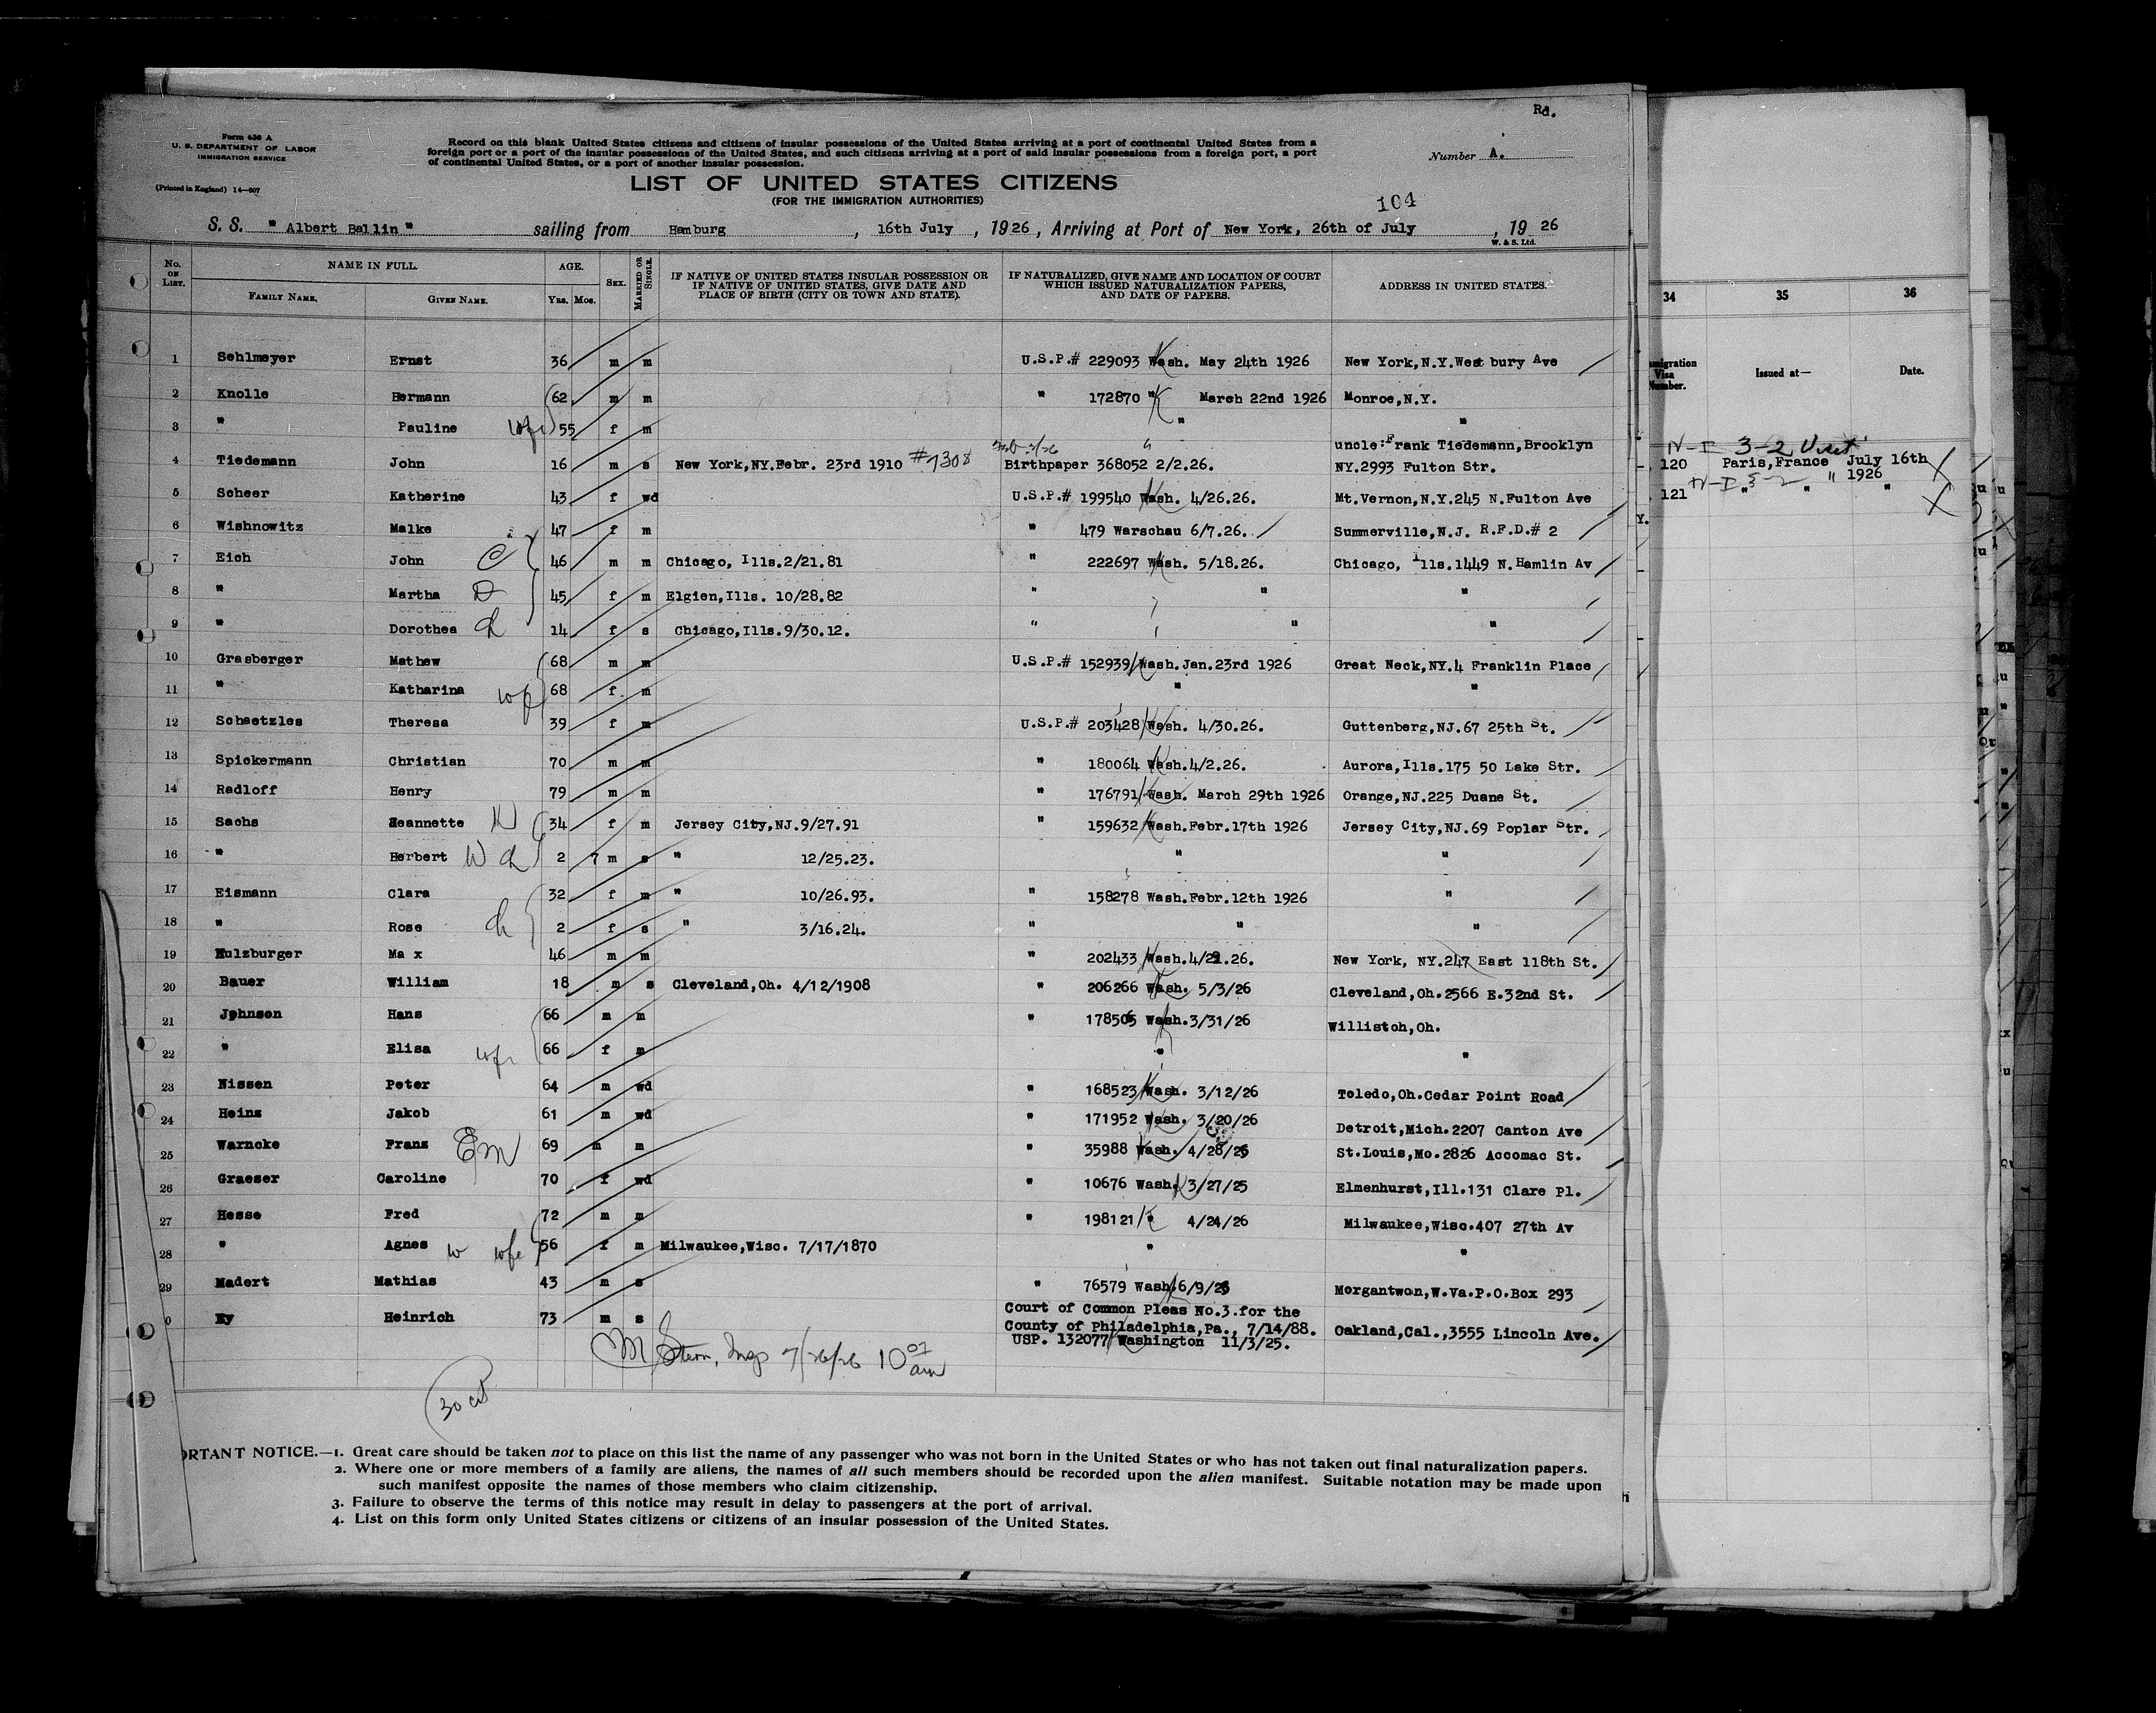 Rd.
Form 630 A
U. S. DEPARTMENT OF LABOR
IMMIGRATION SERVICE
(Printed in England) 14—607
Record on this blank United States citizens and citizens of insular possessions of the United States arriving at a port of continental United States from a
foreign port or a port of the insular possessions of the United States, and such citizens arriving at a port of said insular possessions from a foreign port, a port
of continental United States, or a port of another insular possession.
Number A.
LIST OF UNITED STATES CITIZENS
(FOR THE IMMIGRATION AUTHORITIES)
104
S. S. " Albert Ballin " sailing from Hamburg , 16th July , 1926 , Arriving at Port of New York, 26th of July , 19 26
W. & S. Ltd.
No. ON LIST. NAME IN FULL. AGE. SEX. MARRIED OR SINGLE. IF NATIVE OF UNITED STATES INSULAR POSSESSION OR IF NATIVE OF UNITED STATES, GIVE DATE AND PLACE OF BIRTH (CITY OR TOWN AND STATE). IF NATURALIZED, GIVE NAME AND LOCATION OF COURT WHICH ISSUED NATURALIZATION PAPERS, AND DATE OF PAPERS. ADDRESS IN UNITED STATES.
FAMILY NAME. GIVEN NAME. Yrs. Mos.
1 Sehlmeyer Ernst 36 m m U.S.P.# 229093 Wash. May 24th 1926 New York,N.Y.West bury Ave
2 Knolle Hermann 62 m m " 172870 " March 22nd 1926 Monroe,N.Y.
3 " Pauline wife 55 f m " "
4 Tiedemann John 16 m s New York,NY.Febr. 23rd 1910 #7308 Birthpaper 368052 2/2.26. uncle:Frank Tiedemann,Brooklyn NY.2993 Fulton Str.
5 Scheer Katherine 43 f wd U.S.P.# 199540 Wash. 4/26.26. Mt.Vernon,N.Y.245 N.Fulton Ave
6 Wishnowitz Malke 47 f m " 479 Warschau 6/7.26. Summerville,N.J. R.F.D.# 2
7 Eich John 46 m m Chicago, Ills.2/21.81 " 222697 Wash. 5/18.26. Chicago, Ills.1449 N.Hamlin Av
8 " Martha 45 f m Elgien,Ills. 10/28.82 " " "
9 " Dorothea ch 14 f s Chicago,Ills.9/30.12. " " "
10 Grasberger Mathew 68 m m U.S.P.# 152939 Wash.Jan.23rd 1926 Great Neck,NY.4 Franklin Place
11 " Katharina wf 68 f m " "
12 Schaetzles Theresa 39 f m U.S.P.# 203428 Wash. 4/30.26. Guttenberg,NJ.67 25th St.
13 Spickermann Christian 70 m m " 180064 Wash.4/2.26. Aurora,Ills.175 50 Lake Str.
14 Radloff Henry 79 m m " 176791 Wash. March 29th 1926 Orange,NJ.225 Duane St.
15 Sachs Jeannette W 34 f m Jersey City,NJ.9/27.91 " 159632 Wash.Febr.17th 1926 Jersey City,NJ.69 Poplar Str.
16 " Herbert W ch 2 7 m s " 12/25.23. " "
17 Eismann Clara 32 f m " 10/26.93. " 158278 Wash.Febr.12th 1926 "
18 " Rose ch 2 f s " 3/16.24. " " "
19 Hulzburger Ma x 46 m m " 202433 Wash.4/29.26. New York, NY.247 East 118th St.
20 Bauer William 18 m s Cleveland,Oh. 4/12/1908 " 206266 Wash. 5/3/26 Cleveland,Oh.2566 E.32nd St.
21 Johnson Hans 66 m m " 178505 Wash.3/31/26 Willistoh,Oh.
22 " Elisa wf 66 f m " "
23 Nissen Peter 64 m wd " 168523 Wash. 3/12/26 Toledo,Oh.Cedar Point Road
24 Heins Jakob 61 m wd " 171952 Wash. 3/20/26 Detroit,Mich.2207 Canton Ave
25 Warncke Frans 69 m m " 35988 Wash. 4/28/25 St.Louis,Mo.2826 Accomac St.
26 Graeser Caroline 70 f wd " 10676 Wash. 3/27/25 Elmenhurst,Ill.131 Clare Pl.
27 Hesse Fred 72 m m " 198121 " 4/24/26 Milwaukee,Wisc.407 27th Av
28 " Agnes w wfe 56 f m Milwaukee,Wisc. 7/17/1870 " "
29 Madert Mathias 43 m s " 76579 Wash.6/9/25 Morgantwon,W.Va.P.O.Box 293
0 Ey Heinrich 73 m s Court of Common Pleas No.3.for the County of Philadelphia,Pa., 7/14/88. USP. 132077 Washington 11/3/25. Oakland,Cal.,3555 Lincoln Ave.
M Stern, Insp 7/26/26 10 07 am
30 cit
ORTANT NOTICE.—1. Great care should be taken not to place on this list the name of any passenger who was not born in the United States or who has not taken out final naturalization papers.
2. Where one or more members of a family are aliens, the names of all such members should be recorded upon the alien manifest. Suitable notation may be made upon
such manifest opposite the names of those members who claim citizenship.
3. Failure to observe the terms of this notice may result in delay to passengers at the port of arrival.
4. List on this form only United States citizens or citizens of an insular possession of the United States.
34 35 36
migration Visa Number. Issued at— Date.
120 Paris,France July 16th 1926
121 " " "